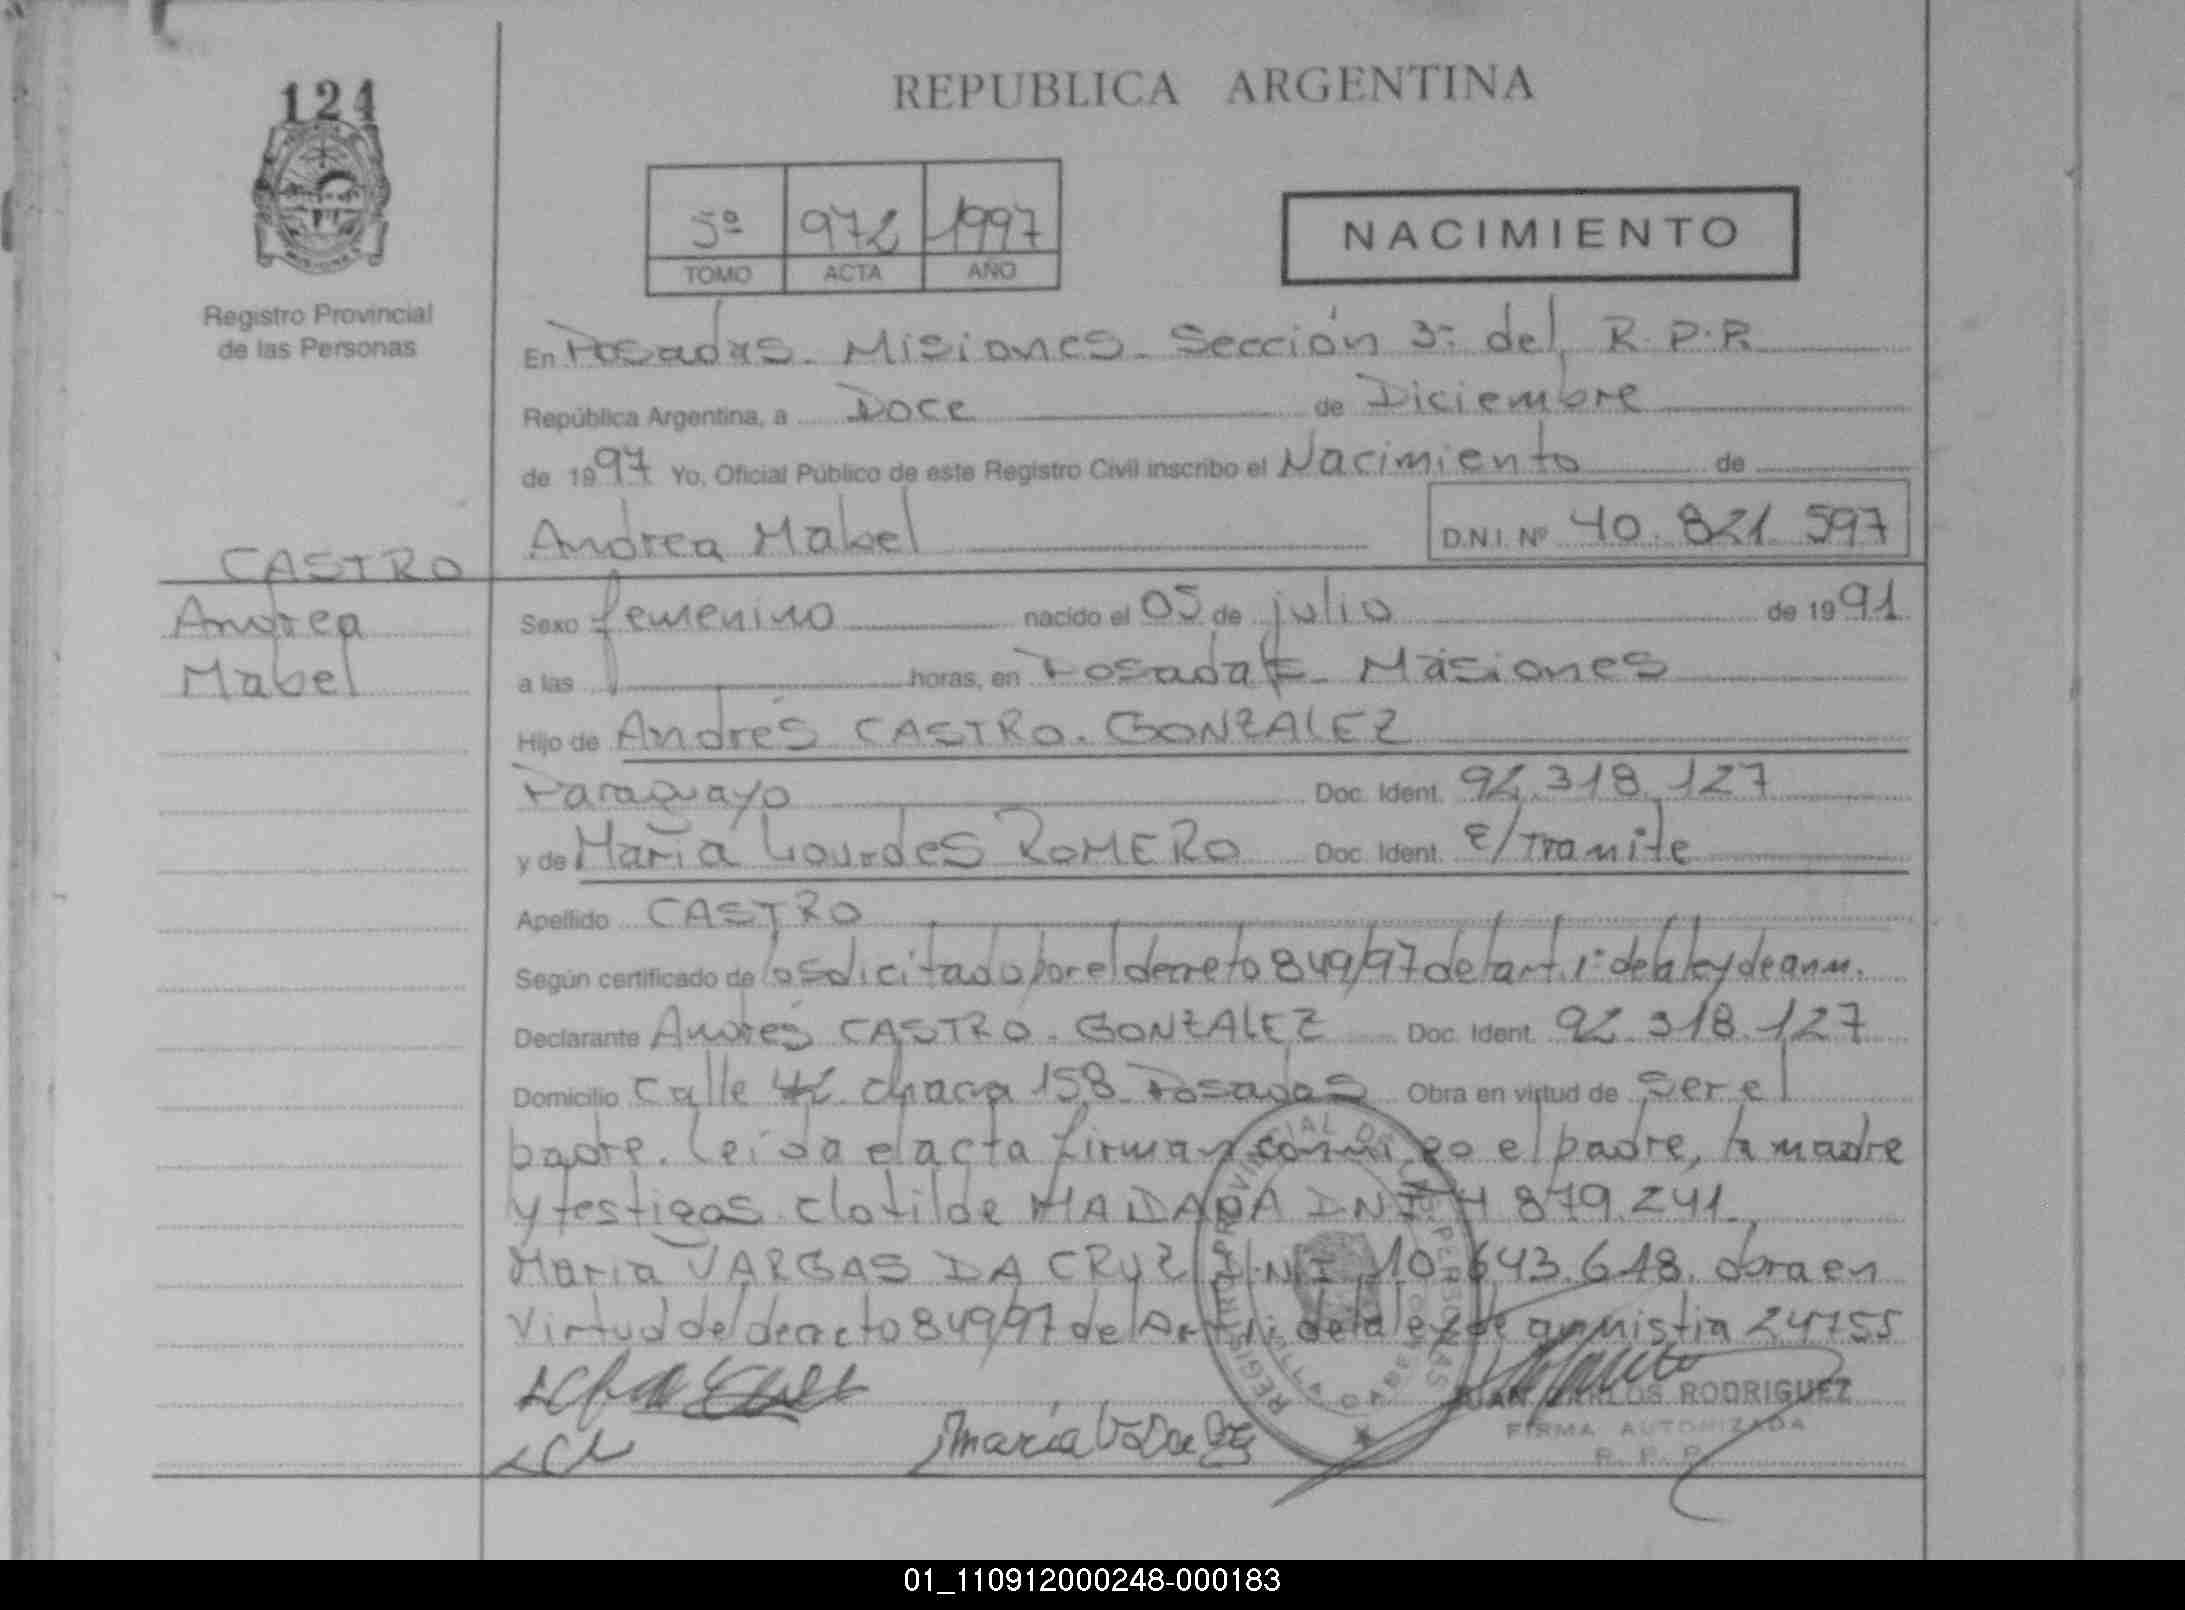 124
REPUBLICA ARGENTINA
5º 972 1997
TOMO ACTA AÑO
NACIMIENTO
Registro Provincial
de las Personas
En Posadas. Misiones. Sección 3º del R.P.P.
República Argentina, a Doce de Diciembre
de 1997 Yo, Oficial Público de este Registro Civil inscribo el Nacimiento de
Andrea Mabel D.N.I. Nº 40.821.597
CASTRO
Andrea
Mabel
Sexo femenino nacido el 05 de julio de 1991
a las horas, en Posadas Misiones
Hijo de Andrés CASTRO. GONZALEZ
Paraguayo Doc. Ident. 92.318.127
y de María Lourdes ROMERO Doc. Ident. E/Tramite
Apellido CASTRO
Según certificado de lo solicitado por el decreto 849/97 del art. 1º de la ley de anm.
Declarante Andrés CASTRO. GONZALEZ Doc. Ident. 92.318.127
Domicilio Calle chacra 158 Posadas Obra en virtud de ser el
padre. Leída el acta firman conmigo el padre, la madre
y testigos Clotilde DNI 4.879.241,
María VARGAS DA CRUZ D.N.I 10.643.648. obra en
Virtud del decreto 849/97 del Art. de la ley de anmistia 24755
María
JUAN CARLOS RODRIGUEZ
FIRMA AUTORIZADA
R. P. P.
REGISTRO PROVINCIAL DE LAS PERSONAS
01_110912000248-000183